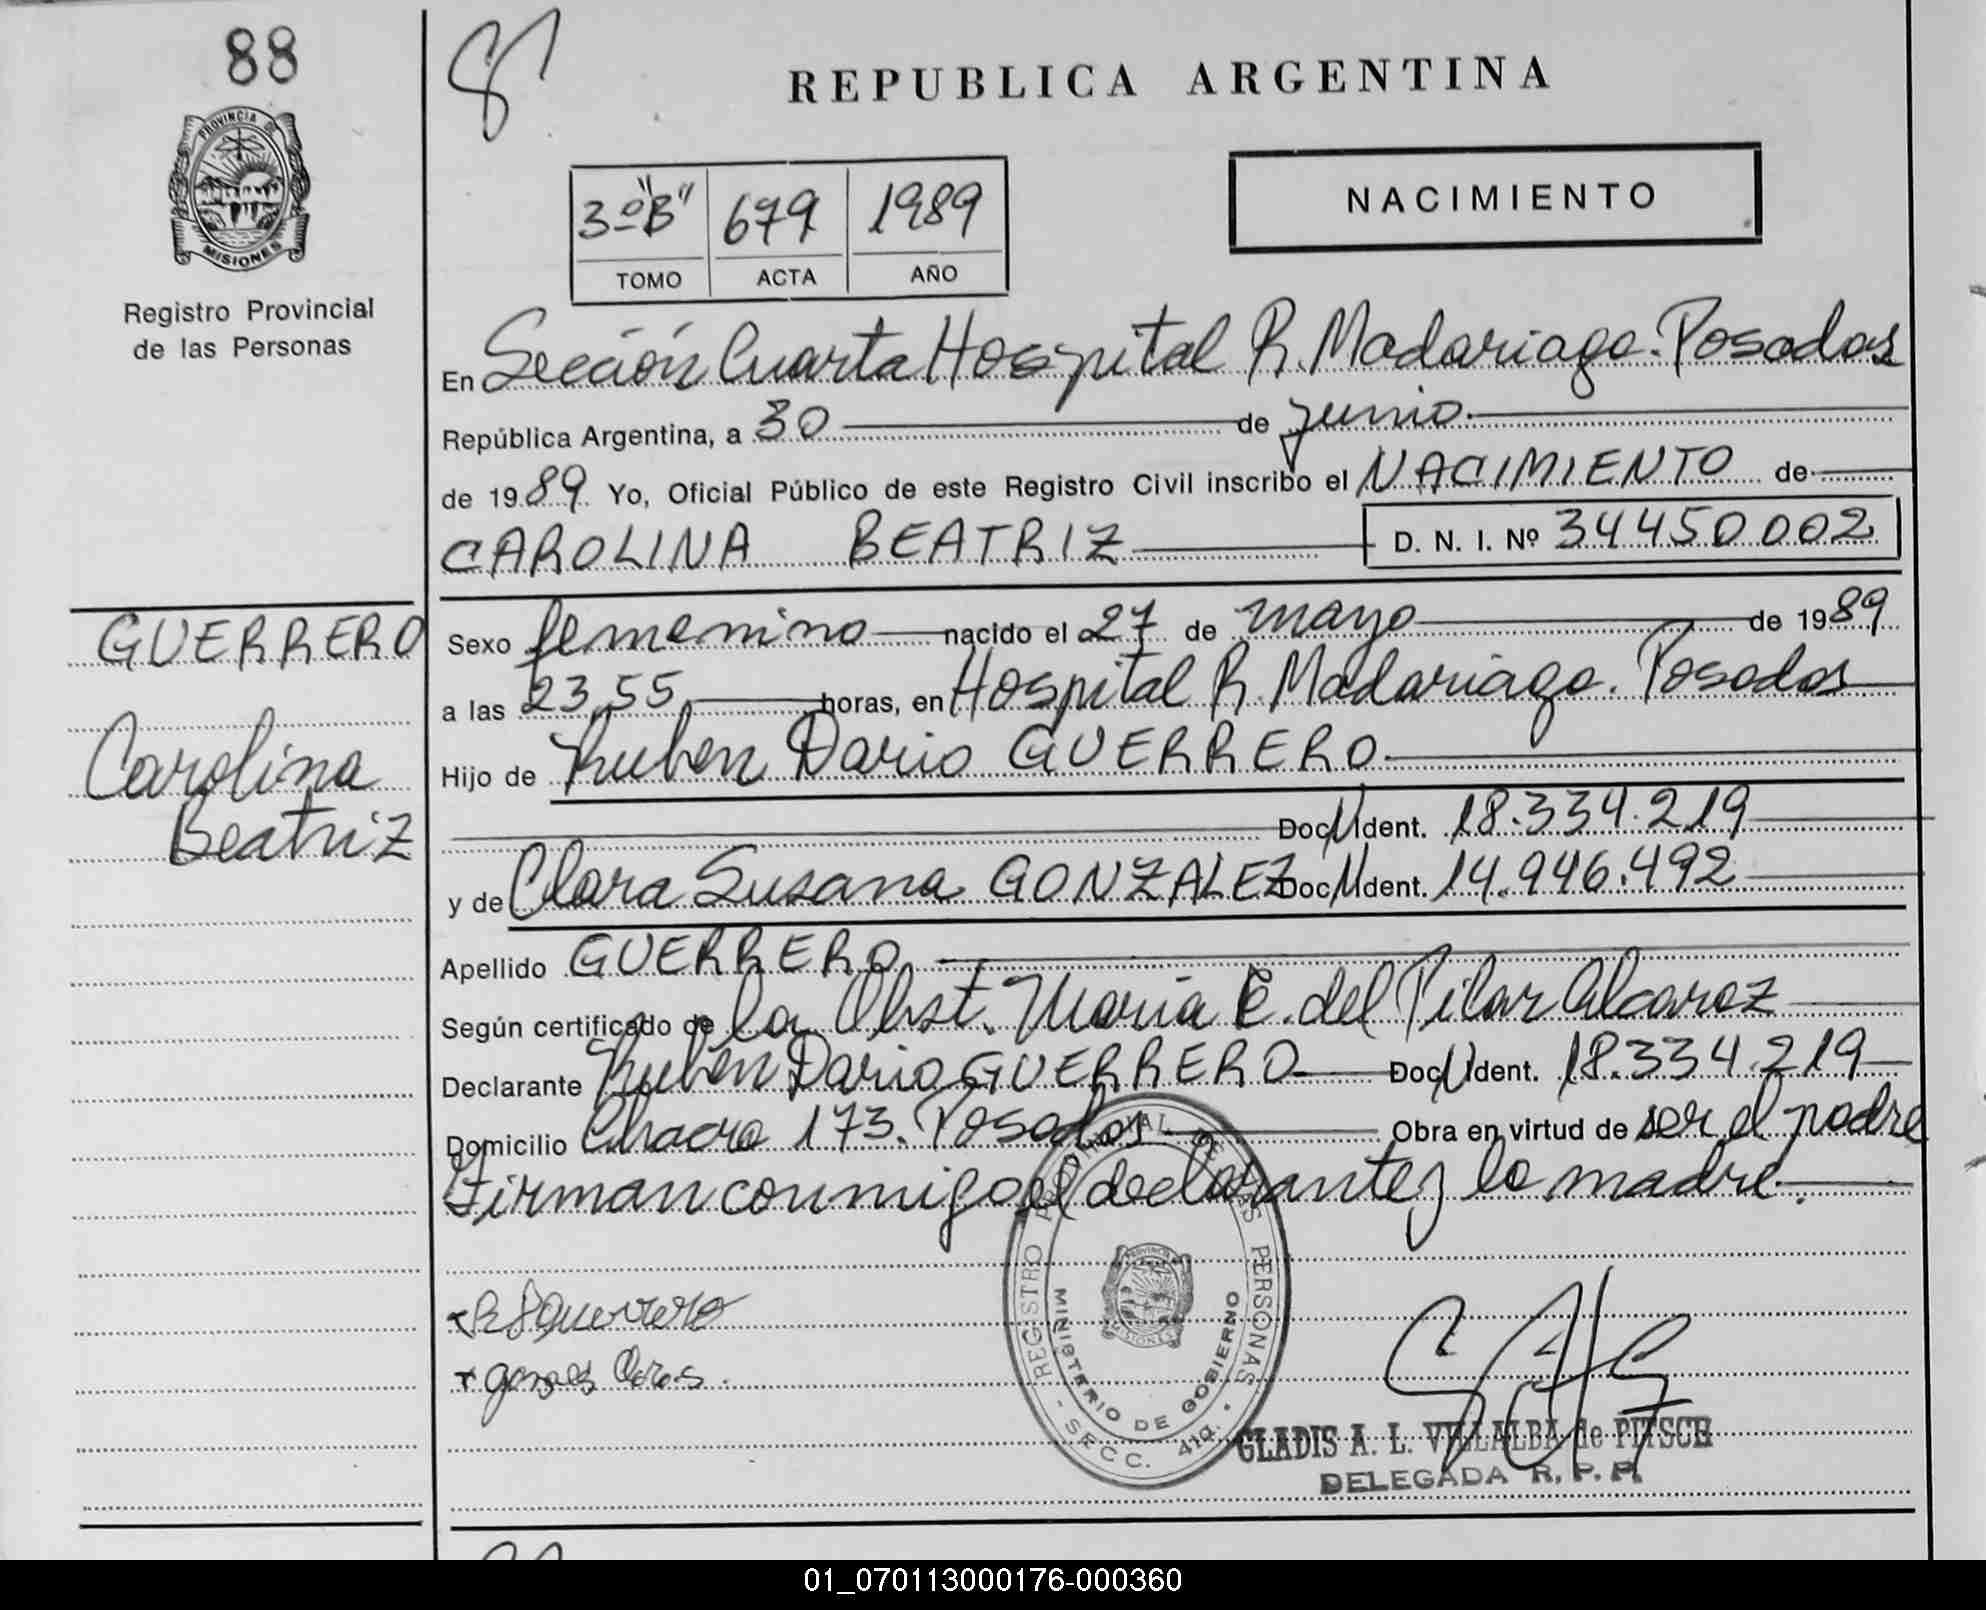 88
PROVINCIA DE
MISIONES
Registro Provincial
de las Personas
GUERRERO
Carolina
Beatriz
REPUBLICA ARGENTINA
3º "B" 679 1989
TOMO ACTA AÑO
NACIMIENTO
En Sección Cuarta Hospital R. Madariaga. Posadas
República Argentina, a 30 de junio.
de 1989. Yo, Oficial Público de este Registro Civil inscribo el NACIMIENTO de
CAROLINA BEATRIZ D. N. I. Nº 34450002
Sexo femenino nacido el 27 de mayo de 1989
a las 23,55 horas, en Hospital R. Madariaga. Posadas
Hijo de Ruben Dario GUERRERO
Doc. Ident. 18.334.219
y de Clara Susana GONZALEZ Doc. Ident. 14.946.492
Apellido GUERRERO
Según certificado de la Obst. Maria E. del Pilar Alcaraz
Declarante Rubén Dario GUERRERO Doc. Ident. 18.334.219
Domicilio Chacra 173. Posadas Obra en virtud de ser el padre
Firman conmigo el declarante y la madre.
Guerrero
REGISTRO PROVINCIAL DE LAS PERSONAS
MINISTERIO DE GOBIERNO
PROVINCIA DE
MISIONES
- SECC. 4ta. -
GLADIS A. L. VILLALBA de PITSCH
DELEGADA R. P. P.
01_070113000176-000360